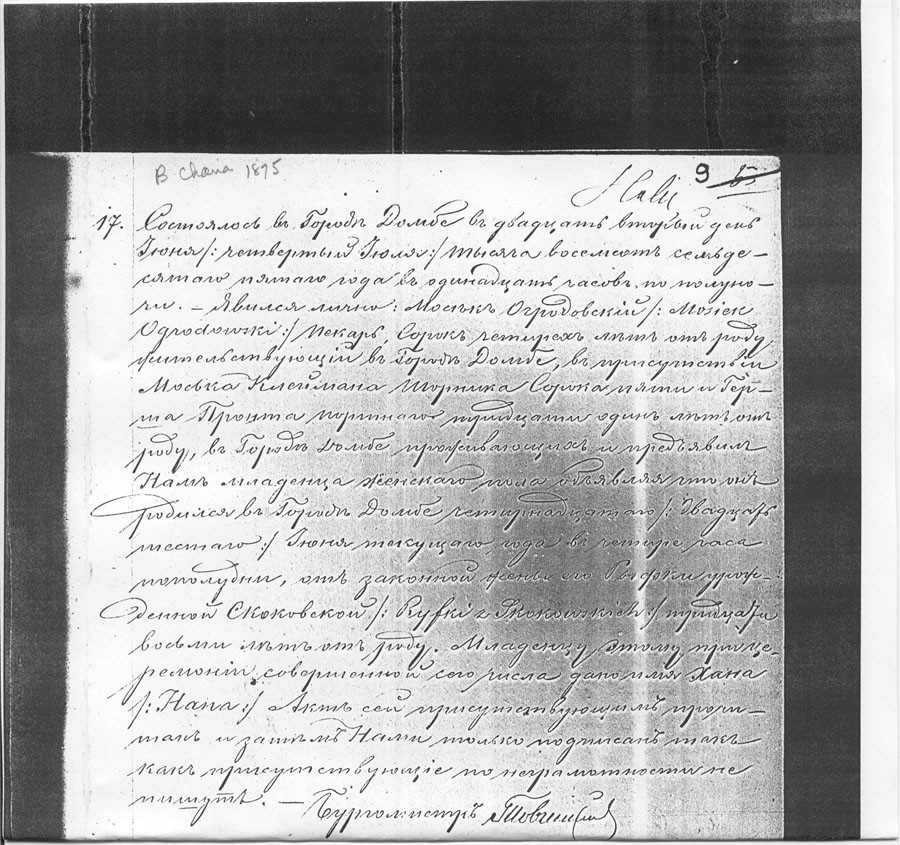 B Chana 1875
9
17. Состоялось въ Городѣ Домбе въ двадцать вторый день
Іюня /: четвертый Іюля :/ тысяча восемсотъ семьде-
сятаго пятаго года въ одинадцать часовъ по полуно-
чи. – Явился лично: Моськъ Огродовскій /: Mosiek
Ogrodowski :/ Пекарь, Сорокъ четирехъ лѣтъ отъ роду
жительствующій въ Городѣ Домбе, въ присутствіи
Моська Клеймана Шорника Сорока пяти и Гер-
ша Пронта Портнаго тридцати одинъ лѣтъ отъ
роду, въ Городѣ Домбе проживающихъ и предъявил
Намъ младенца женскаго пола объявляя что онъ
родился въ Городѣ Домбе четирнадцатаго /: двадцать
шестаго :/ Іюня текущаго года въ четире часа
пополудни, отъ законной жены его Рыфки урож-
денной Скоковской /: Ryfki z Skokowskich :/ тридцати
восьми лѣтъ отъ роду. Младенцу этому при це-
ремоніи совершенной сего числа дано имя Хана
/: Hana :/ Актъ сей присутствующимъ прочи-
танъ и затѣмъ Нами только подписанъ такъ
какъ присутствующіе по неграмотности не
пишутъ. – Бургомистръ